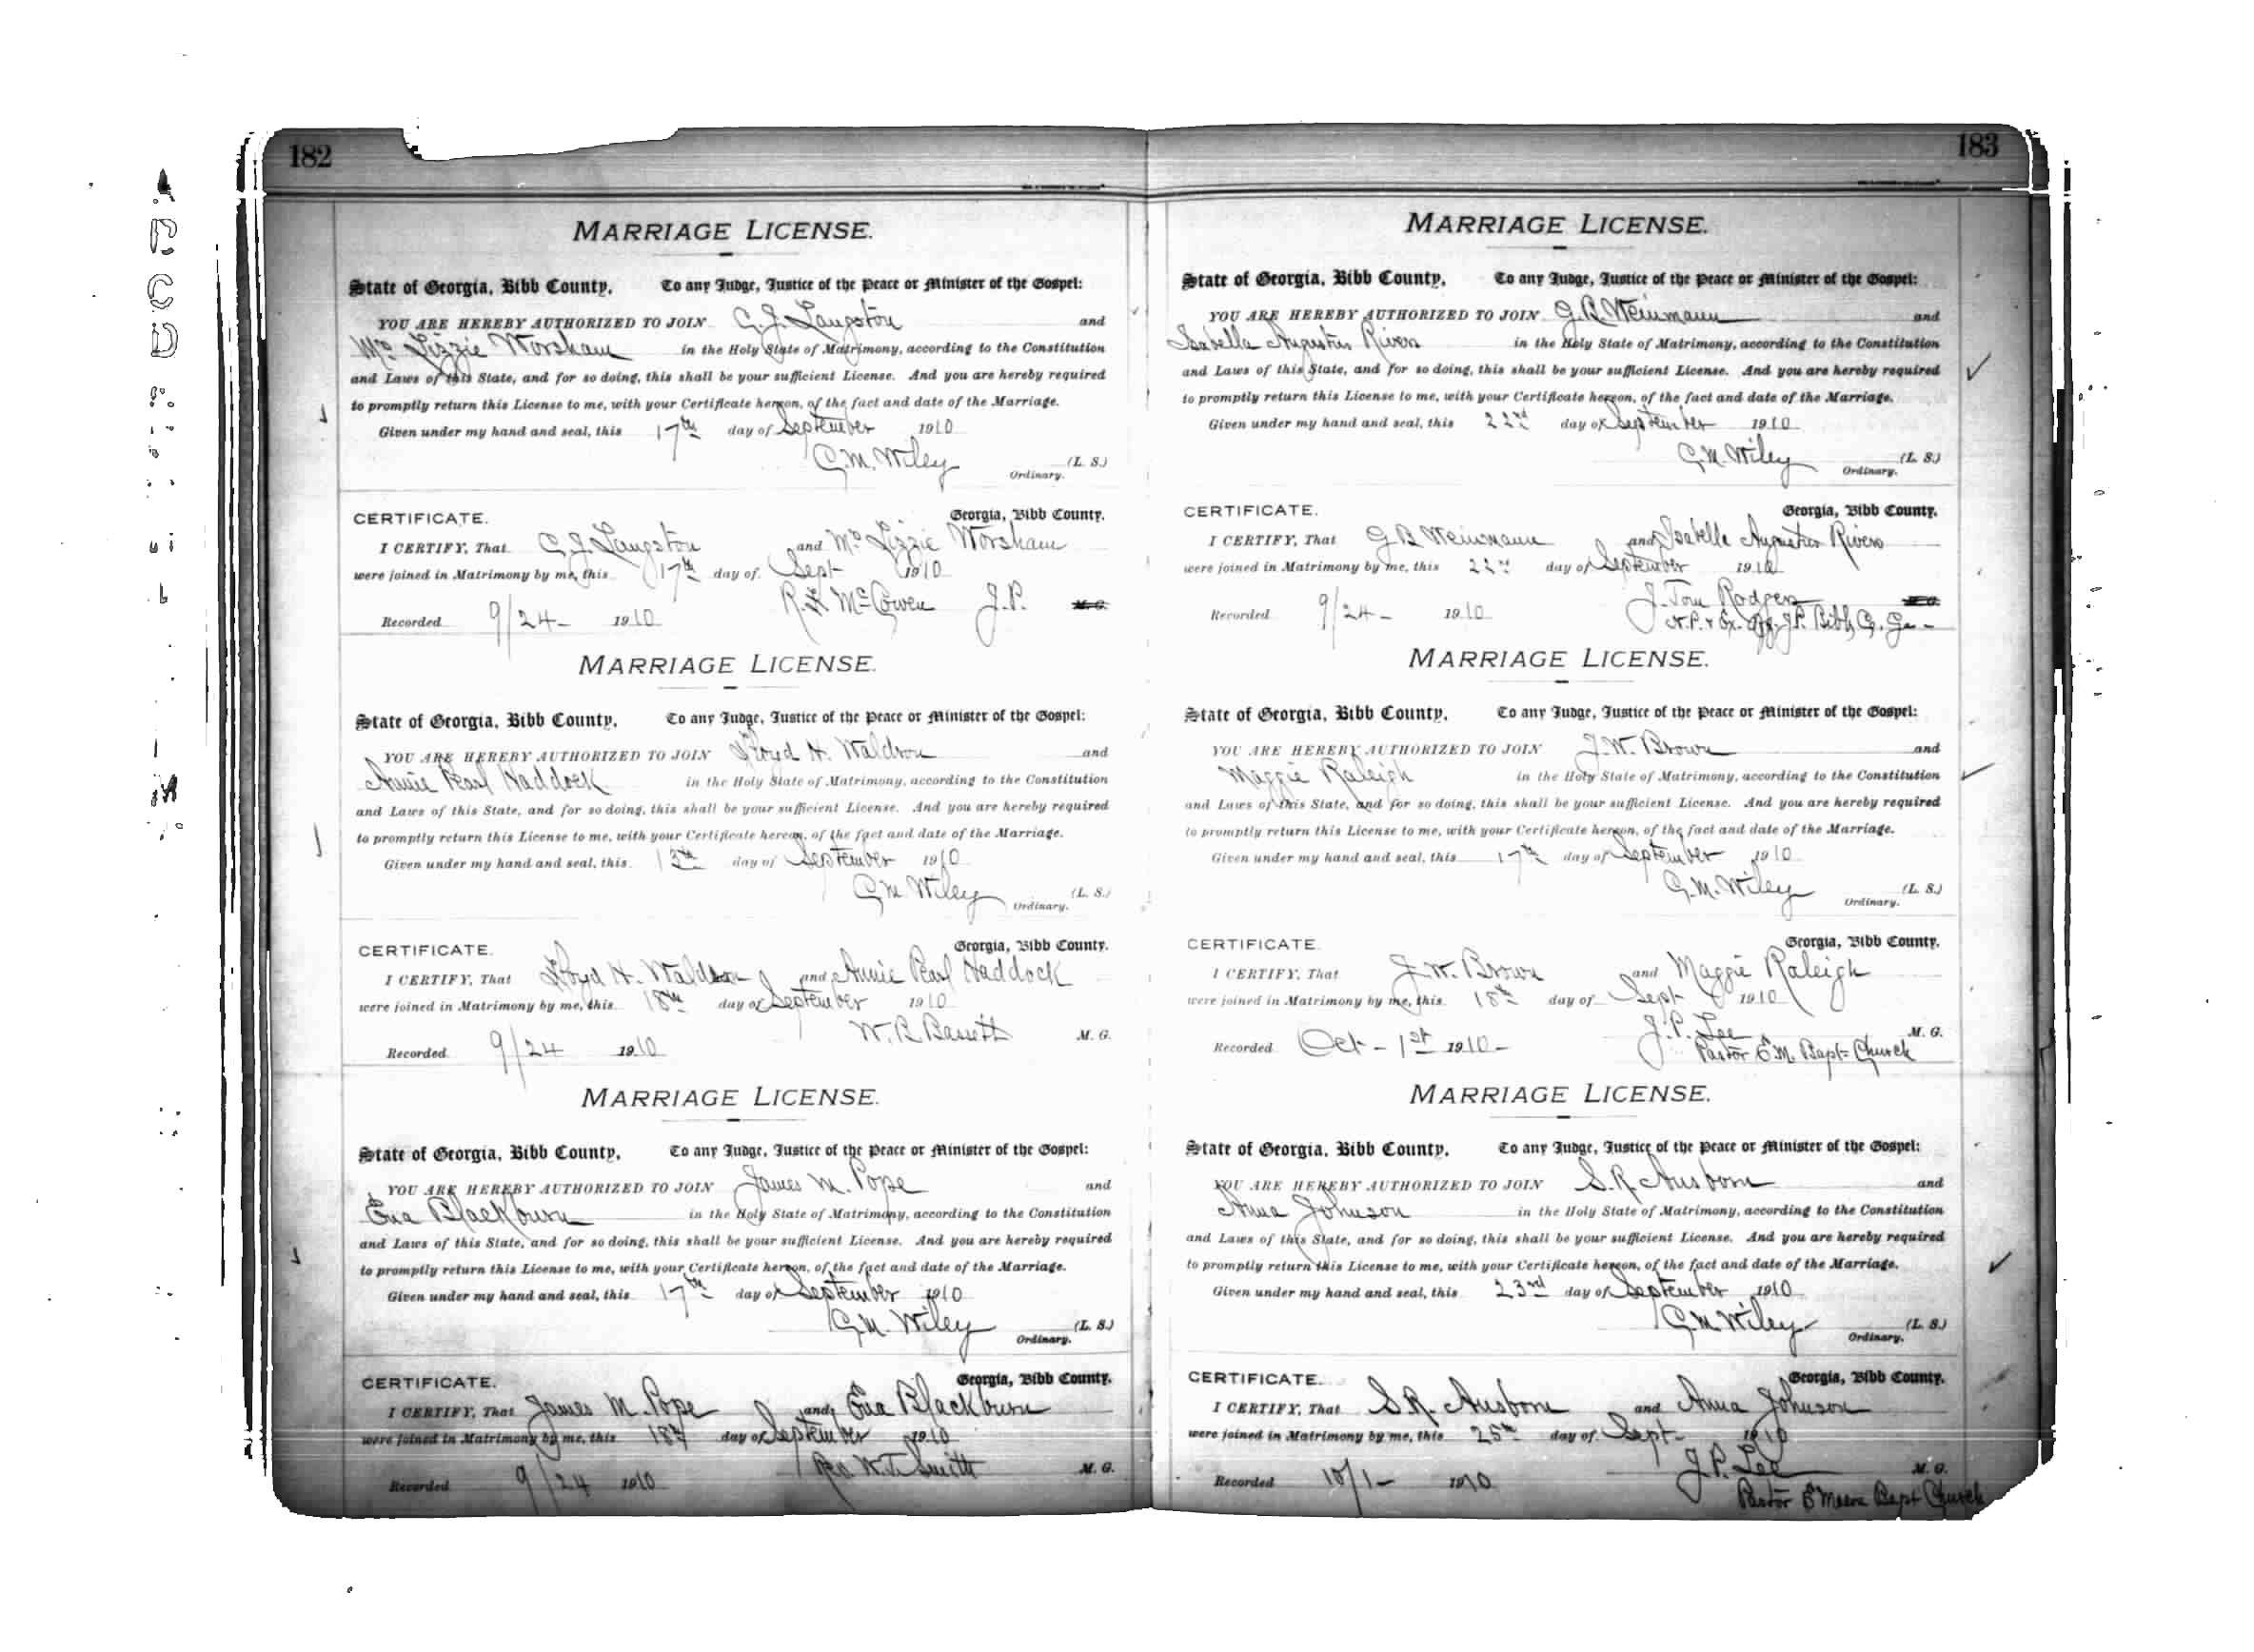 182
MARRIAGE LICENSE.
State of Georgia, Bibb County, To any Judge, Justice of the Peace or Minister of the Gospel:
YOU ARE HEREBY AUTHORIZED TO JOIN C. J. Langston and
Mrs Lizzie Worsham in the Holy State of Matrimony, according to the Constitution
and Laws of this State, and for so doing, this shall be your sufficient License. And you are hereby required
to promptly return this License to me, with your Certificate hereon, of the fact and date of the Marriage.
Given under my hand and seal, this 17th day of September 1910
C. M. Wiley (L. S.)
Ordinary.
CERTIFICATE. Georgia, Bibb County.
I CERTIFY, That C. J. Langston and Mrs Lizzie Worsham
were joined in Matrimony by me, this 17th day of Sept 1910
R. L. McCowen J. P. M. G.
Recorded 9/24- 1910
MARRIAGE LICENSE.
State of Georgia, Bibb County, To any Judge, Justice of the Peace or Minister of the Gospel:
YOU ARE HEREBY AUTHORIZED TO JOIN Floyd H. Waldron and
Annie Pearl Haddock in the Holy State of Matrimony, according to the Constitution
and Laws of this State, and for so doing, this shall be your sufficient License. And you are hereby required
to promptly return this License to me, with your Certificate hereon, of the fact and date of the Marriage.
Given under my hand and seal, this 13th day of September 1910
C M Wiley (L. S.)
Ordinary.
CERTIFICATE. Georgia, Bibb County.
I CERTIFY, That Floyd H. Waldron and Annie Pearl Haddock
were joined in Matrimony by me, this 18th day of September 1910
W. R. M. G.
Recorded 9/24 1910
MARRIAGE LICENSE.
State of Georgia, Bibb County, To any Judge, Justice of the Peace or Minister of the Gospel:
YOU ARE HEREBY AUTHORIZED TO JOIN James M. Pope and
Eva Blackburn in the Holy State of Matrimony, according to the Constitution
and Laws of this State, and for so doing, this shall be your sufficient License. And you are hereby required
to promptly return this License to me, with your Certificate hereon, of the fact and date of the Marriage.
Given under my hand and seal, this 17th day of September 1910
C. M. Wiley (L. S.)
Ordinary.
CERTIFICATE. Georgia, Bibb County.
I CERTIFY, That James M. Pope and Eva Blackburn
were joined in Matrimony by me, this 18th day of September 1910
Rev. W. T. Smith M. G.
Recorded 9/24 1910
183
MARRIAGE LICENSE.
State of Georgia, Bibb County, To any Judge, Justice of the Peace or Minister of the Gospel:
YOU ARE HEREBY AUTHORIZED TO JOIN G. B. Weinmann and
Isabella Augustus Rivers in the Holy State of Matrimony, according to the Constitution
and Laws of this State, and for so doing, this shall be your sufficient License. And you are hereby required
to promptly return this License to me, with your Certificate hereon, of the fact and date of the Marriage.
Given under my hand and seal, this 22nd day of September 1910
C. M. Wiley (L. S.)
Ordinary.
CERTIFICATE. Georgia, Bibb County.
I CERTIFY, That G B Weinmann and Isabella Augustus Rivers
were joined in Matrimony by me, this 22nd day of September 1910
J. Tom Rodgers M. G.
Recorded 9/24- 1910 N. P. & Ex. Off. J. P. Bibb Co. Ga-
MARRIAGE LICENSE.
State of Georgia, Bibb County, To any Judge, Justice of the Peace or Minister of the Gospel:
YOU ARE HEREBY AUTHORIZED TO JOIN J. W. Brown and
Maggie Raleigh in the Holy State of Matrimony, according to the Constitution
and Laws of this State, and for so doing, this shall be your sufficient License. And you are hereby required
to promptly return this License to me, with your Certificate hereon, of the fact and date of the Marriage.
Given under my hand and seal, this 17th day of September 1910
C. M. Wiley (L. S.)
Ordinary.
CERTIFICATE. Georgia, Bibb County.
I CERTIFY, That J. W. Brown and Maggie Raleigh
were joined in Matrimony by me, this 18th day of Sept 1910
J. P. Lee M. G.
Recorded Oct- 1st 1910- Pastor E. M. Bapt- Church
MARRIAGE LICENSE.
State of Georgia, Bibb County, To any Judge, Justice of the Peace or Minister of the Gospel:
YOU ARE HEREBY AUTHORIZED TO JOIN S. R. Ausborn and
Anna Johnson in the Holy State of Matrimony, according to the Constitution
and Laws of this State, and for so doing, this shall be your sufficient License. And you are hereby required
to promptly return this License to me, with your Certificate hereon, of the fact and date of the Marriage.
Given under my hand and seal, this 23rd day of September 1910
C. M. Wiley (L. S.)
Ordinary.
CERTIFICATE. Georgia, Bibb County.
I CERTIFY, That S. R. Ausborn and Anna Johnson
were joined in Matrimony by me, this 25th day of Sept- 1910
J. P. Lee M. G.
Recorded 10/1- 1910
Pastor E Macon Bapt Church